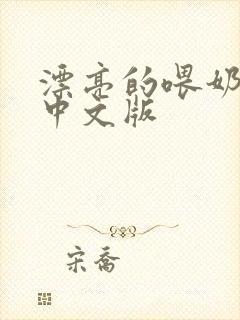 漂亮的喂奶
中文版
宋乔